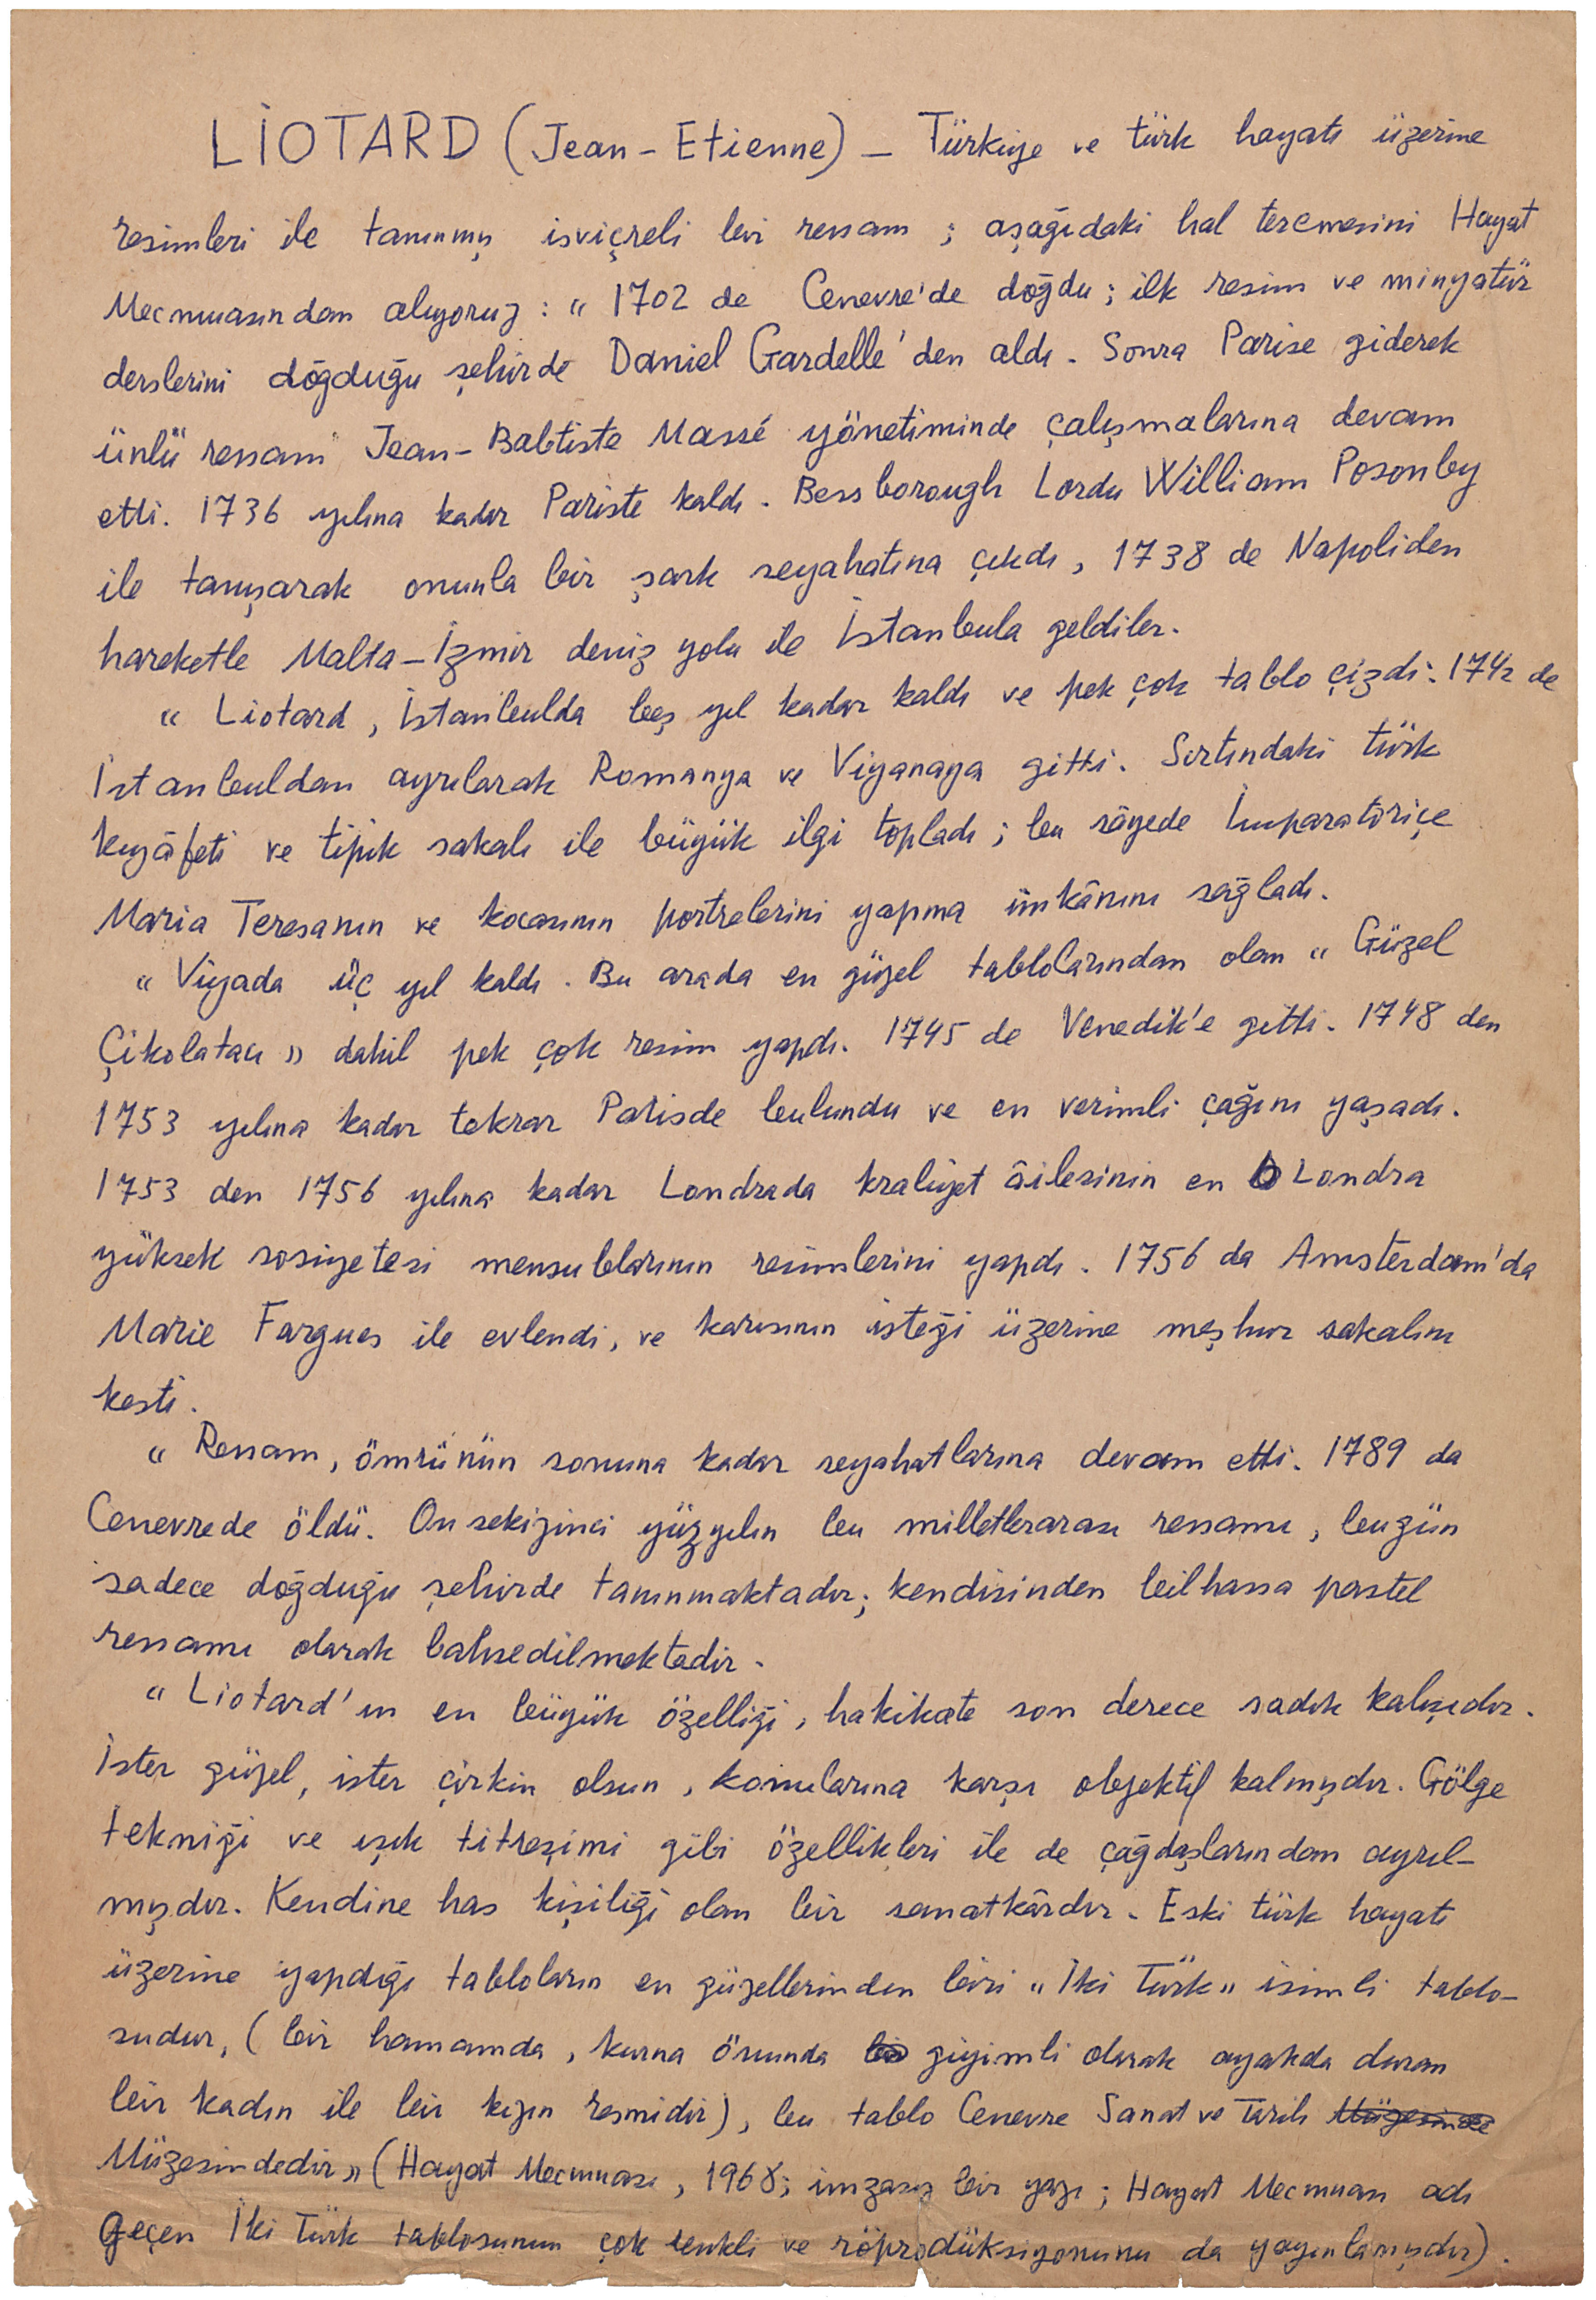 LİOTARD (Jean-Etienne) — Türkiye ve türk hayatı üzerine
resimleri ile tanınmış isviçreli bir ressam ; aşağıdaki hal tercemesini Hayat
Mecmuasından alıyoruz : " 1702 de Cenevre'de doğdu ; ilk resim ve minyatür
derslerini doğduğu şehirde Daniel Gardelle'den aldı. Sonra Parise giderek
ünlü ressam Jean-Babtiste Massé yönetiminde çalışmalarına devam
etti. 1736 yılına kadar Pariste kaldı. Bessborough Lordu William Posonby
ile tanışarak onunla bir şark seyahatına çıkdı, 1738 de Napoliden
hareketle Malta-İzmir deniz yolu ile İstanbula geldiler.
" Liotard, İstanbulda beş yıl kadar kaldı ve pek çok tablo çizdi. 1742 de
İstanbuldan ayrılarak Romanya ve Viyanaya gitti. Sırtındaki türk
kıyâfeti ve tipik sakalı ile büyük ilgi topladı ; bu sâyede İmparatoriçe
Maria Teresanın ve kocasının portrelerini yapma imkânını sağladı.
" Viyada üç yıl kaldı. Bu arada en güzel tablolarından olan " Güzel
Çikolatacı " dahil pek çok resim yapdı. 1745 de Venedik'e gitti. 1748 den
1753 yılına kadar tekrar Parisde bulundu ve en verimli çağını yaşadı.
1753 den 1756 yılına kadar Londrada kraliyet âilesinin en Londra
yüksek sosiyetesi mensublarının resimlerini yapdı. 1756 da Amsterdam'da
Marie Fargues ile evlendi, ve karısının isteği üzerine meşhur sakalını
kesti.
" Ressam, ömrünün sonuna kadar seyahatlarına devam etti. 1789 da
Cenevrede öldü. Onsekizinci yüzyılın bu milletlerarası ressamı, bugün
sadece doğduğu şehirde tanınmaktadır; kendisinden bilhassa pastel
ressamı olarak bahsedilmektedir.
" Liotard'ın en büyük özelliği, hakikate son derece sadık kalışıdır.
İster güzel, ister çirkin olsun, konularına karşı objektif kalmışdır. Gölge
tekniği ve ışık titreşimi gibi özellikleri ile de çağdaşlarından ayrıl-
mışdır. Kendine has kişiliği olan bir sanatkârdır. Eski türk hayatı
üzerine yapdığı tabloların en güzellerinden biri " İki Türk " isimli tablo-
sudur, ( bir hamamda, kurna önünda giyimli olarak ayakda duran
bir kadın ile bir kızın resmidir), bu tablo Cenevre Sanat ve Tarih Müzesinde
Müzesindedir " ( Hayat Mecmuası, 1968; imzasız bir yazı ; Hayat Mecmuası adı
Geçen İki Türk tablosunun çok renkli ve röprodüksiyonunu da yayınlamışdır).